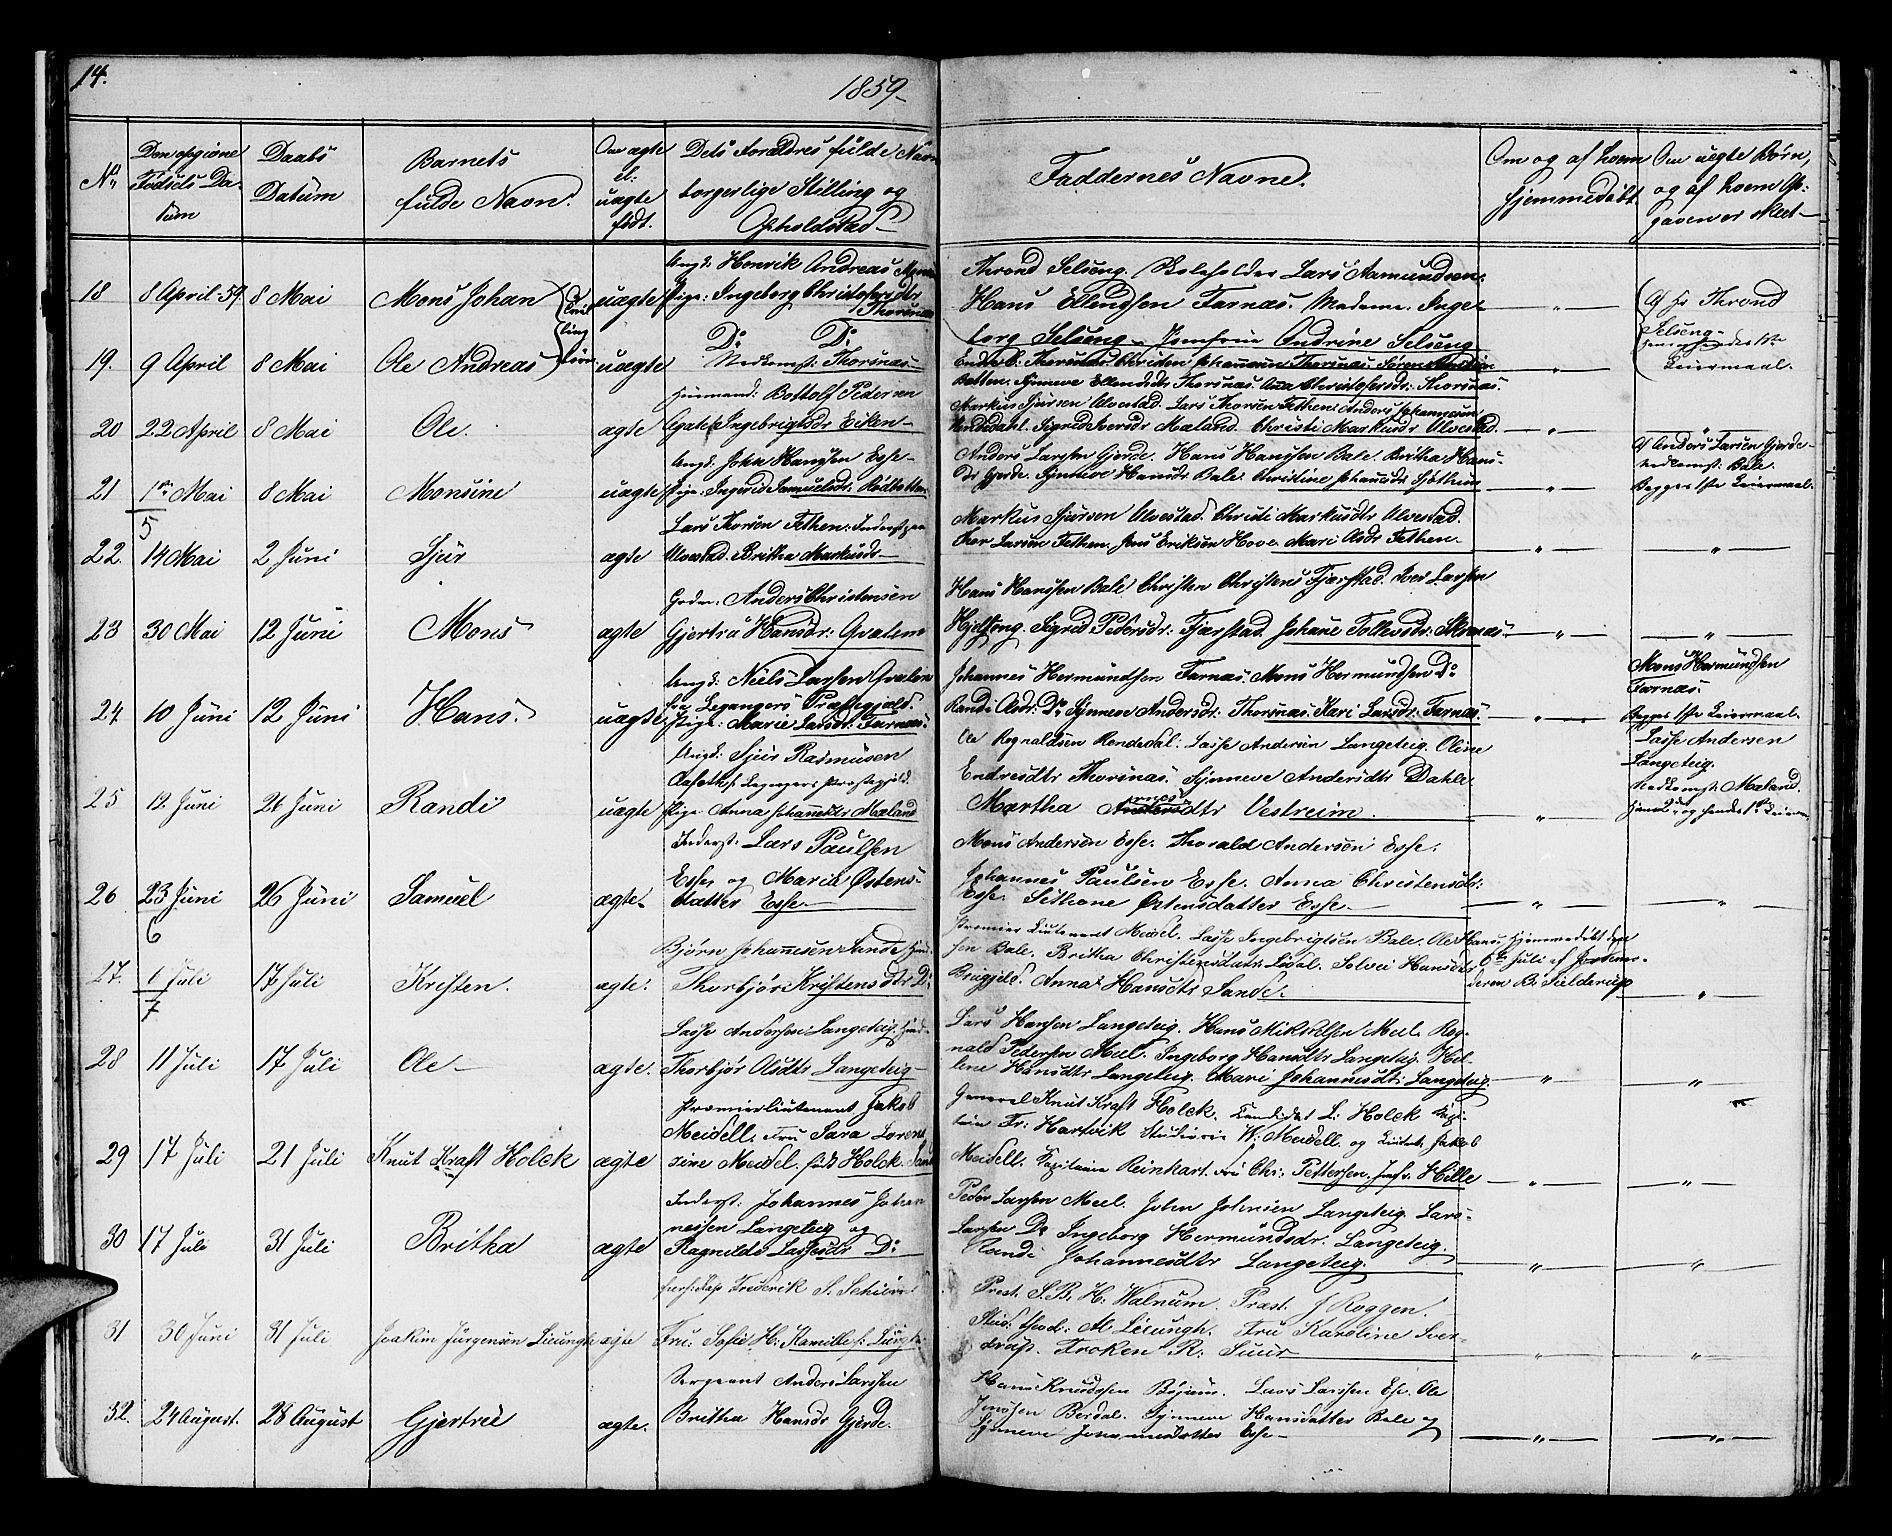 14.
1859.
No
Den opgivne Fødsels Datum
Daabs Datum
Barnets fulde Navn.
Om ægte el: uægte født.
Dets Forældres fulde Navn borgerlige Stilling og Opholdstæd
Faddernes Navne.
Om og af hvem hjemmedøbt
Om uegte Børn, og af hvem Opgaven er skeet
18 8 April 59. 8 Mai Mons Johan uægte
Ungk: Henrik Andreas
Pige: Ingeborg Christofersdtr
Thorsnæs
Thrond Selseng. Skoleholder Lars Aamundsen.
Hans Ellingsen Farnæs. Madame Inge-
borg Selseng Jomfrue Andrine Selseng
Af Hr Thrond
Selseng
Leiermaal.
19. 9 April 8 Mai Ole Andreas uægte
Do Do
Nedkomst: Thorsnæs
Endre E: Thorsnæs. Christen Johannesen Thorsnæs. Søren
Botten: Synneve Ellendsdtr Thorsnæs. Anna Christofersdr: Thorsnæs.
20 22 April 8 Mai Ole. ægte
Huusmand: Bottolf Pedersen
Agate Ingebrigtsdr Eiken
Markus Sjursen Ulvestad. Lars Thorsen Fethen: Anders Johannesen
Vendedahl. Sigrid Iversdr Mæland. Christi Markusdr Ulvestad.
21 1ste Mai 8 Mai Monsine uægte
Ungk: John Hansen Esse
Pige: Ingerid Samuelsdr: Rødbotten
Anders Larssen Gjerde. Hans Hanssen Bale. Britha Hans-
Dr Gjerde. Synneve Hansdr Bale. Christine Johansdr Sjøthun
Af Anders Larsen Gjerde
Nedkomst: Bale.
Begges 1ste Leiermaal.
5
22. 14 Mai 2 Juni Sjur ægte
Lars Thorsen Fethen: Inderst paa
Ulvestad. Britha Markusdr
Markus Sjursen Ulvestad. Christi Markusdtr Ulvestad.
Iver Larsen Fethen. Jens Eriksen Hove. Mari Olsdr Fethen.
23 30 Mai 12 Juni Mons ægte
Grdm: Anders Christensen
Gjertru Hansdr: Qvalem
Hans Hanssen Bale Christen Christens Fjærstad. Iver Larsen
Sigrid Pedersdr: Fjærstad. Johane Tollevsdr:
24 10 Juni 12 Juni Hans. uægte
Ungk: Niels Larsen Qvalem
fra Leganger Præstegjeld.
Pige: Marie Larsdr: Farnæs
Johannes Hermundsen Farnæs. Mons Hermundsen Do
Randi Olsdr: Do Synneve Andersdr: Thorsnæs. Kari Larsdr: Farnæs
Mons Hermundsen
Farnæs.
Begges 1ste Leiermaal.
25 12. Juni 26 Juni Randi uægte
Ungk: Sjur Rasmusen
f: Leganger Præstegjeld.
Pige: Anna Johannesdtr Mæland
Ole Regnaldsen Rendedal: Lasse Andersen Langeteig. Oline
Endresdtr Thorsnæs. Synneve Andersdtr Dahle.
Martha Andersdtr Vestreim.
Lasse Andersen
Langeteig.
Nedkomst: Mæland.
Hans 2de og hendes 1ste Leierm
26 23 Juni 26 Juni Samuel ægte
Inderst: Lars Paulsen
Esse og Maria Østens-
datter Esse.
Mons Andersen Esse. Thorald Andersen Esse.
Johannes Paulsen Esse. Anna Christensdr:
Esse. Sethone Østensdatter Esse.
6
27. 1 Juli 17 Juli Kristen. ægte.
Bjørn Johannesen Sande
Thorbjør Kristensdtr Do
Premier Lieutenant Meidel. Lasse Ingebrigtsen Bale. Ole Han-
sen Bale. Britha Christensdatr: Lidal. Solvei Hansdtr
Anna Hansdtr Sande.
Hjemmedøbt den
6te Juli af Jordemo-
deren B. Fielderup
7
28 11 Juli 17 Juli Ole ægte.
Lasse Andersen Langeteig
Thorbjør Olsdtr Langeteig
Lars Hanssen Langeteig. Hans Mikkelsen Meel. Reg-
nald Pedersen Meel. Ingeborg Hansdtr Langeteig. He-
lene Hansdtr Langeteig. Mari Johannesdtr Langeteig.
29 17 Juli 21 Juli Knut Kraft Holck ægte
Premierlieutenant Jakob
Meidell. Fru Sara Loren-
tine Meidel. født Holck.
General Knut Kraft Holck. Candidat L: Holck Capi-
tain Fr: Hartvik Studiosus W: Meidell. og Lieut: Jakob
Meidell. Kapitaine Reinhart. Fru Chr: Pettersen. Jmfr. Hille
30 17 Juli 31 Juli Britha ægte
Inderst. Johannes Johan-
nessen Langeteig og
Ragnilde Lassesdr Do
Peder Larssen Meel. John Johnsen Langeteig. Lars
Larssen Do Ingeborg Hermundsdr. Langeteig.
Randi Johannesdtr Langeteig.
31 30 Juni 31 Juli Joakim Jürgensen Lieungh ægte
Pers: Kap Frederik S. Schiøtz
Fru: Sofie H: Kamille f:
Præst. S. B. H. Walnum. Præst. J Roggen.
Stud: theol: Al Lieungh. Fru Karoline Sver-
drup. Frøken R: Suur
32. 24 August. 28 August Gjertrue ægte.
Sergeant Anders Larssen
Britha Hansdr Gjerde.
Hans Knudssen Bøjum. Lars Larssen Esse. Ole
Jensen Berdal. Synneve Hansdatter Bale og
Synneve Johannesdatter Esse